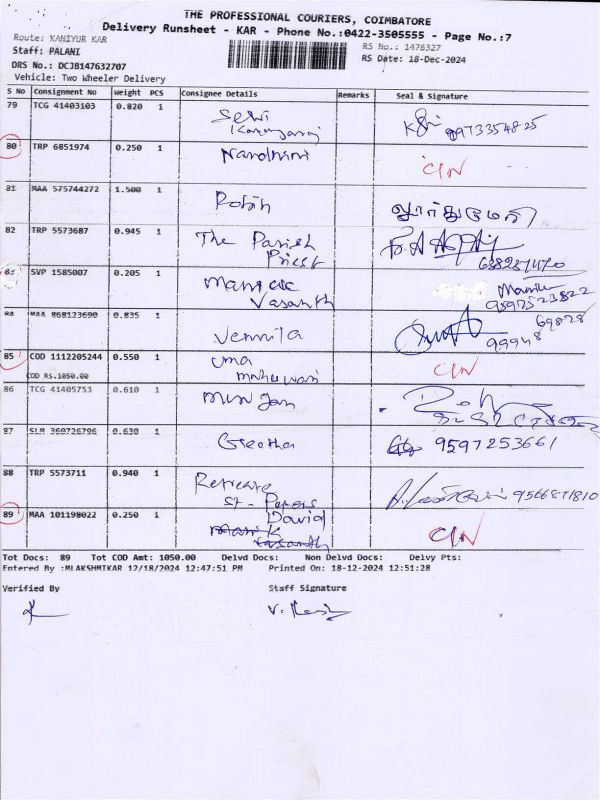 THE PROFESSIONAL COURIERS, COIMBATORE
Delivery Runsheet - KAR - Phone No.:0422-3505555 - Page No.:7
Route: KANIYUR KAR
RS No.: 1476327
Staff: PALANI
RS Date: 18-Dec-2024
DRS No.: DCJB147632707
Vehicle: Two Wheeler Delivery
S No Consignment No Weight PCS Consignee Details Remarks Seal & Signature
79 TCG 41403103 0.820 1 Selvi
80 TRP 6851974 0.250 1 Nandhini C/N
81 MAA 575744272 1.500 1 Robin
82 TRP 5573687 0.945 1 The Parish
Priest
83 SVP 1585007 0.205 1
Vasanth 9597523822
84 MAA 868123690 0.835 1 Vennila 69828
99948
85 COD 1112205244 0.550 1 uma C/N
COD Rs.1050.00 maheswari
86 TCG 41405753 0.610 1
87 SLM 360726796 0.630 1 Geetha 9597253661
88 TRP 5573711 0.940 1
St - Peters 9566871810
89 MAA 101198022 0.250 1 David C/N
Vasanth
Tot Docs: 89 Tot COD Amt: 1050.00 Delvd Docs: Non Delvd Docs: Delvy Pts:
Entered By :MLAKSHMTKAR 12/18/2024 12:47:51 PM Printed On: 18-12-2024 12:51:28
Verified By Staff Signature